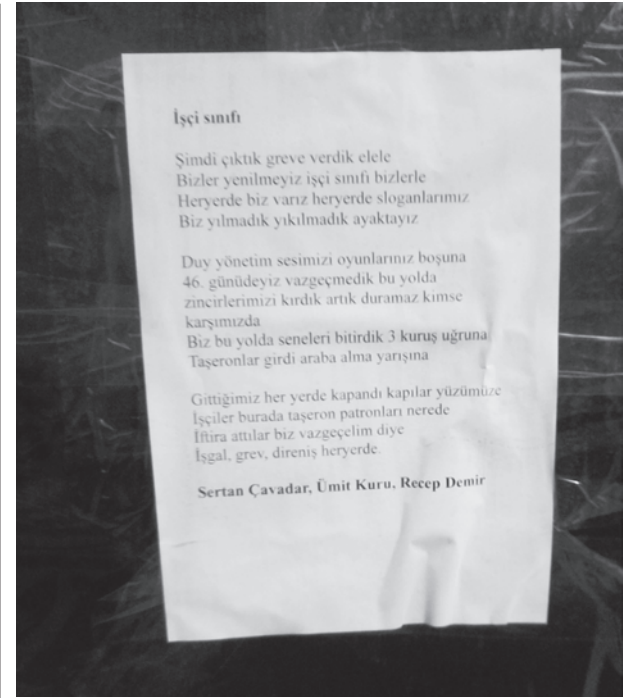 İşçi sınıfı
Şimdi çıktık greve verdik elele
Bizler yenilmeyiz işçi sınıfı bizlerle
Heryerde biz varız heryerde sloganlarımız
Biz yılmadık yıkılmadık ayaktayız
Duy yönetim sesimizi oyunlarınız boşuna
46. günüdeyiz vazgeçmedik bu yolda
zincirlerimizi kırdık artık duramaz kimse
karşımızda
Biz bu yolda seneleri bitirdik 3 kuruş uğruna
Taşeronlar girdi araba alma yarışına
Gittiğimiz her yerde kapandı kapılar yüzümüze
İşçiler burada taşeron patronları nerede
İftira attılar biz vazgeçelim diye
İşgal, grev, direniş heryerde.
Sertan Çavadar, Ümit Kuru, Recep Demir